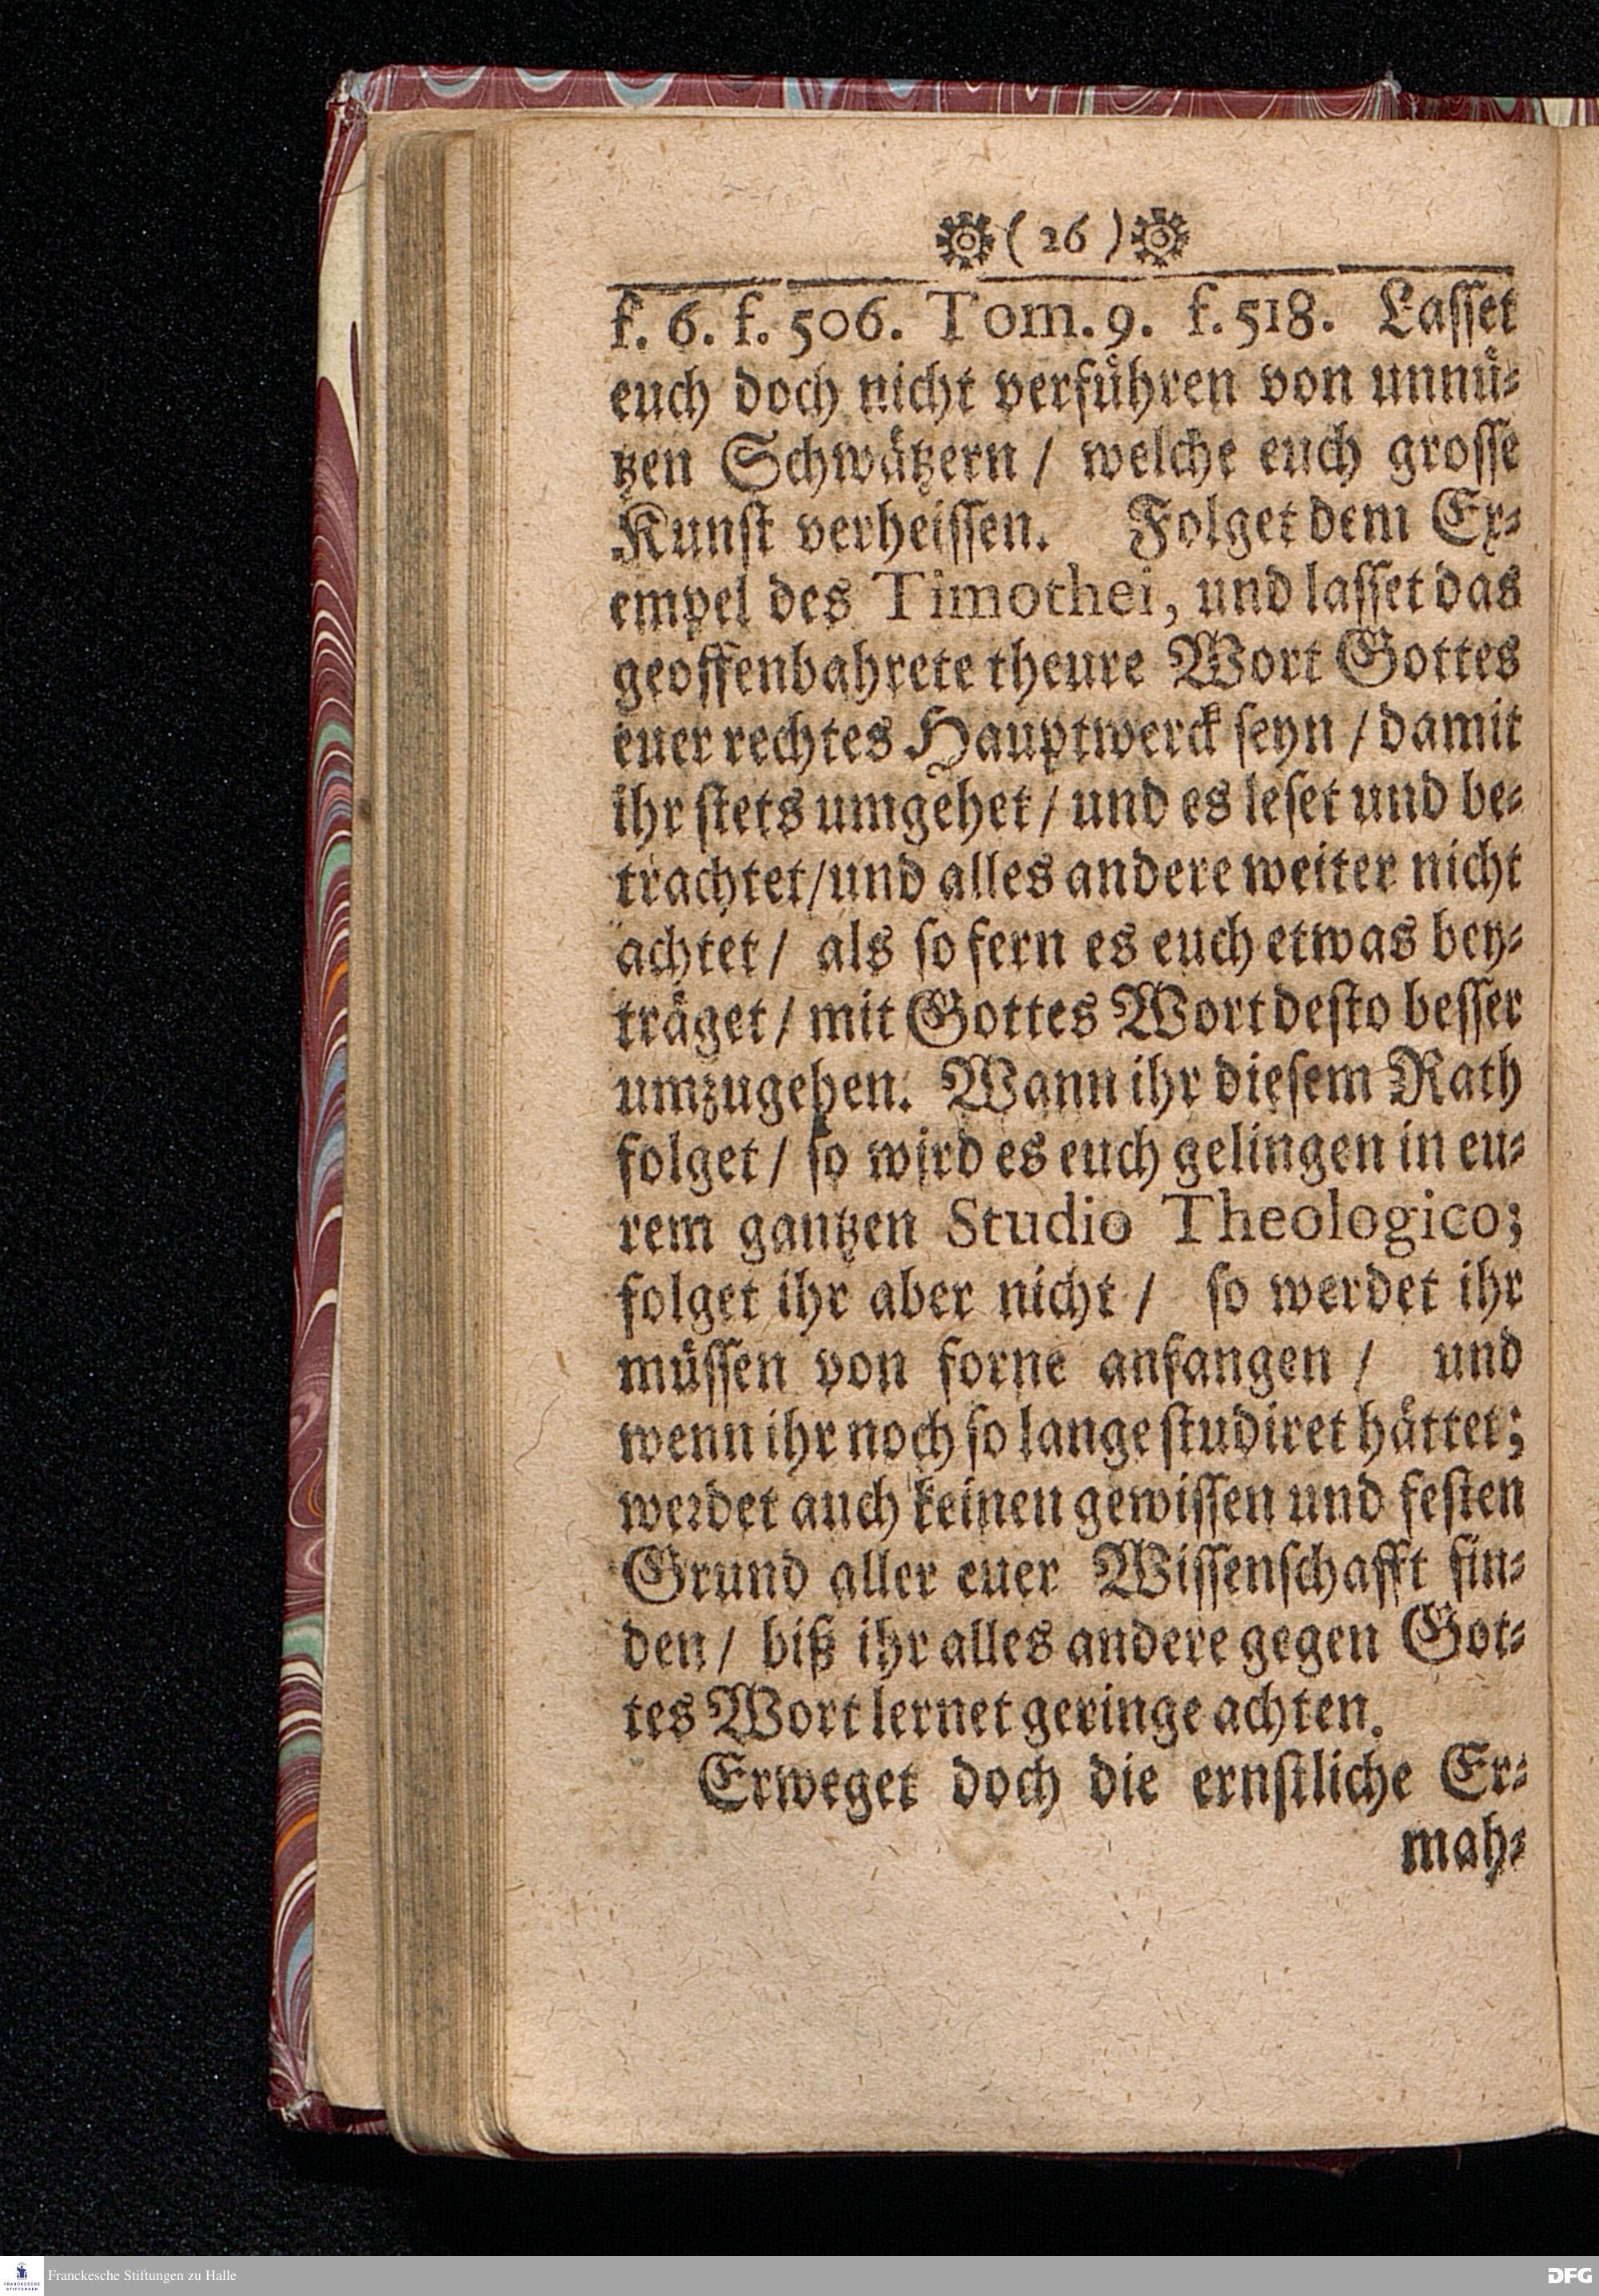 ( 26 )
f. 6. f. 506. Tom. 9. f. 518. Lasset
euch doch nicht verführen von unnü-
tzen Schwätzern / welche euch grosse
Kunst verheissen. Folget dem Ex-
empel des Timothei, und lasset das
geoffenbahrete theure Wort Gottes
euer rechtes Hauptwerck seyn / damit
ihr stets umgehet / und es leset und be-
trachtet / und alles andere weiter nicht
achtet / als so fern es euch etwas bey-
träget / mit Gottes Wort desto besser
umzugehen. Wann ihr diesem Rath
folget / so wird es euch gelingen in eu-
rem gantzen Studio Theologico;
folget ihr aber nicht / so werdet ihr
müssen von forne anfangen / und
wenn ihr noch so lange studiret hättet;
werdet auch keinen gewissen und festen
Grund aller euer Wissenschafft fin-
den / biß ihr alles andere gegen Got-
tes Wort lernet geringe achten.
Erweget doch die ernstliche Er-
mah-
FRANCKESCHE STIFTUNGEN
Franckesche Stiftungen zu Halle
DFG